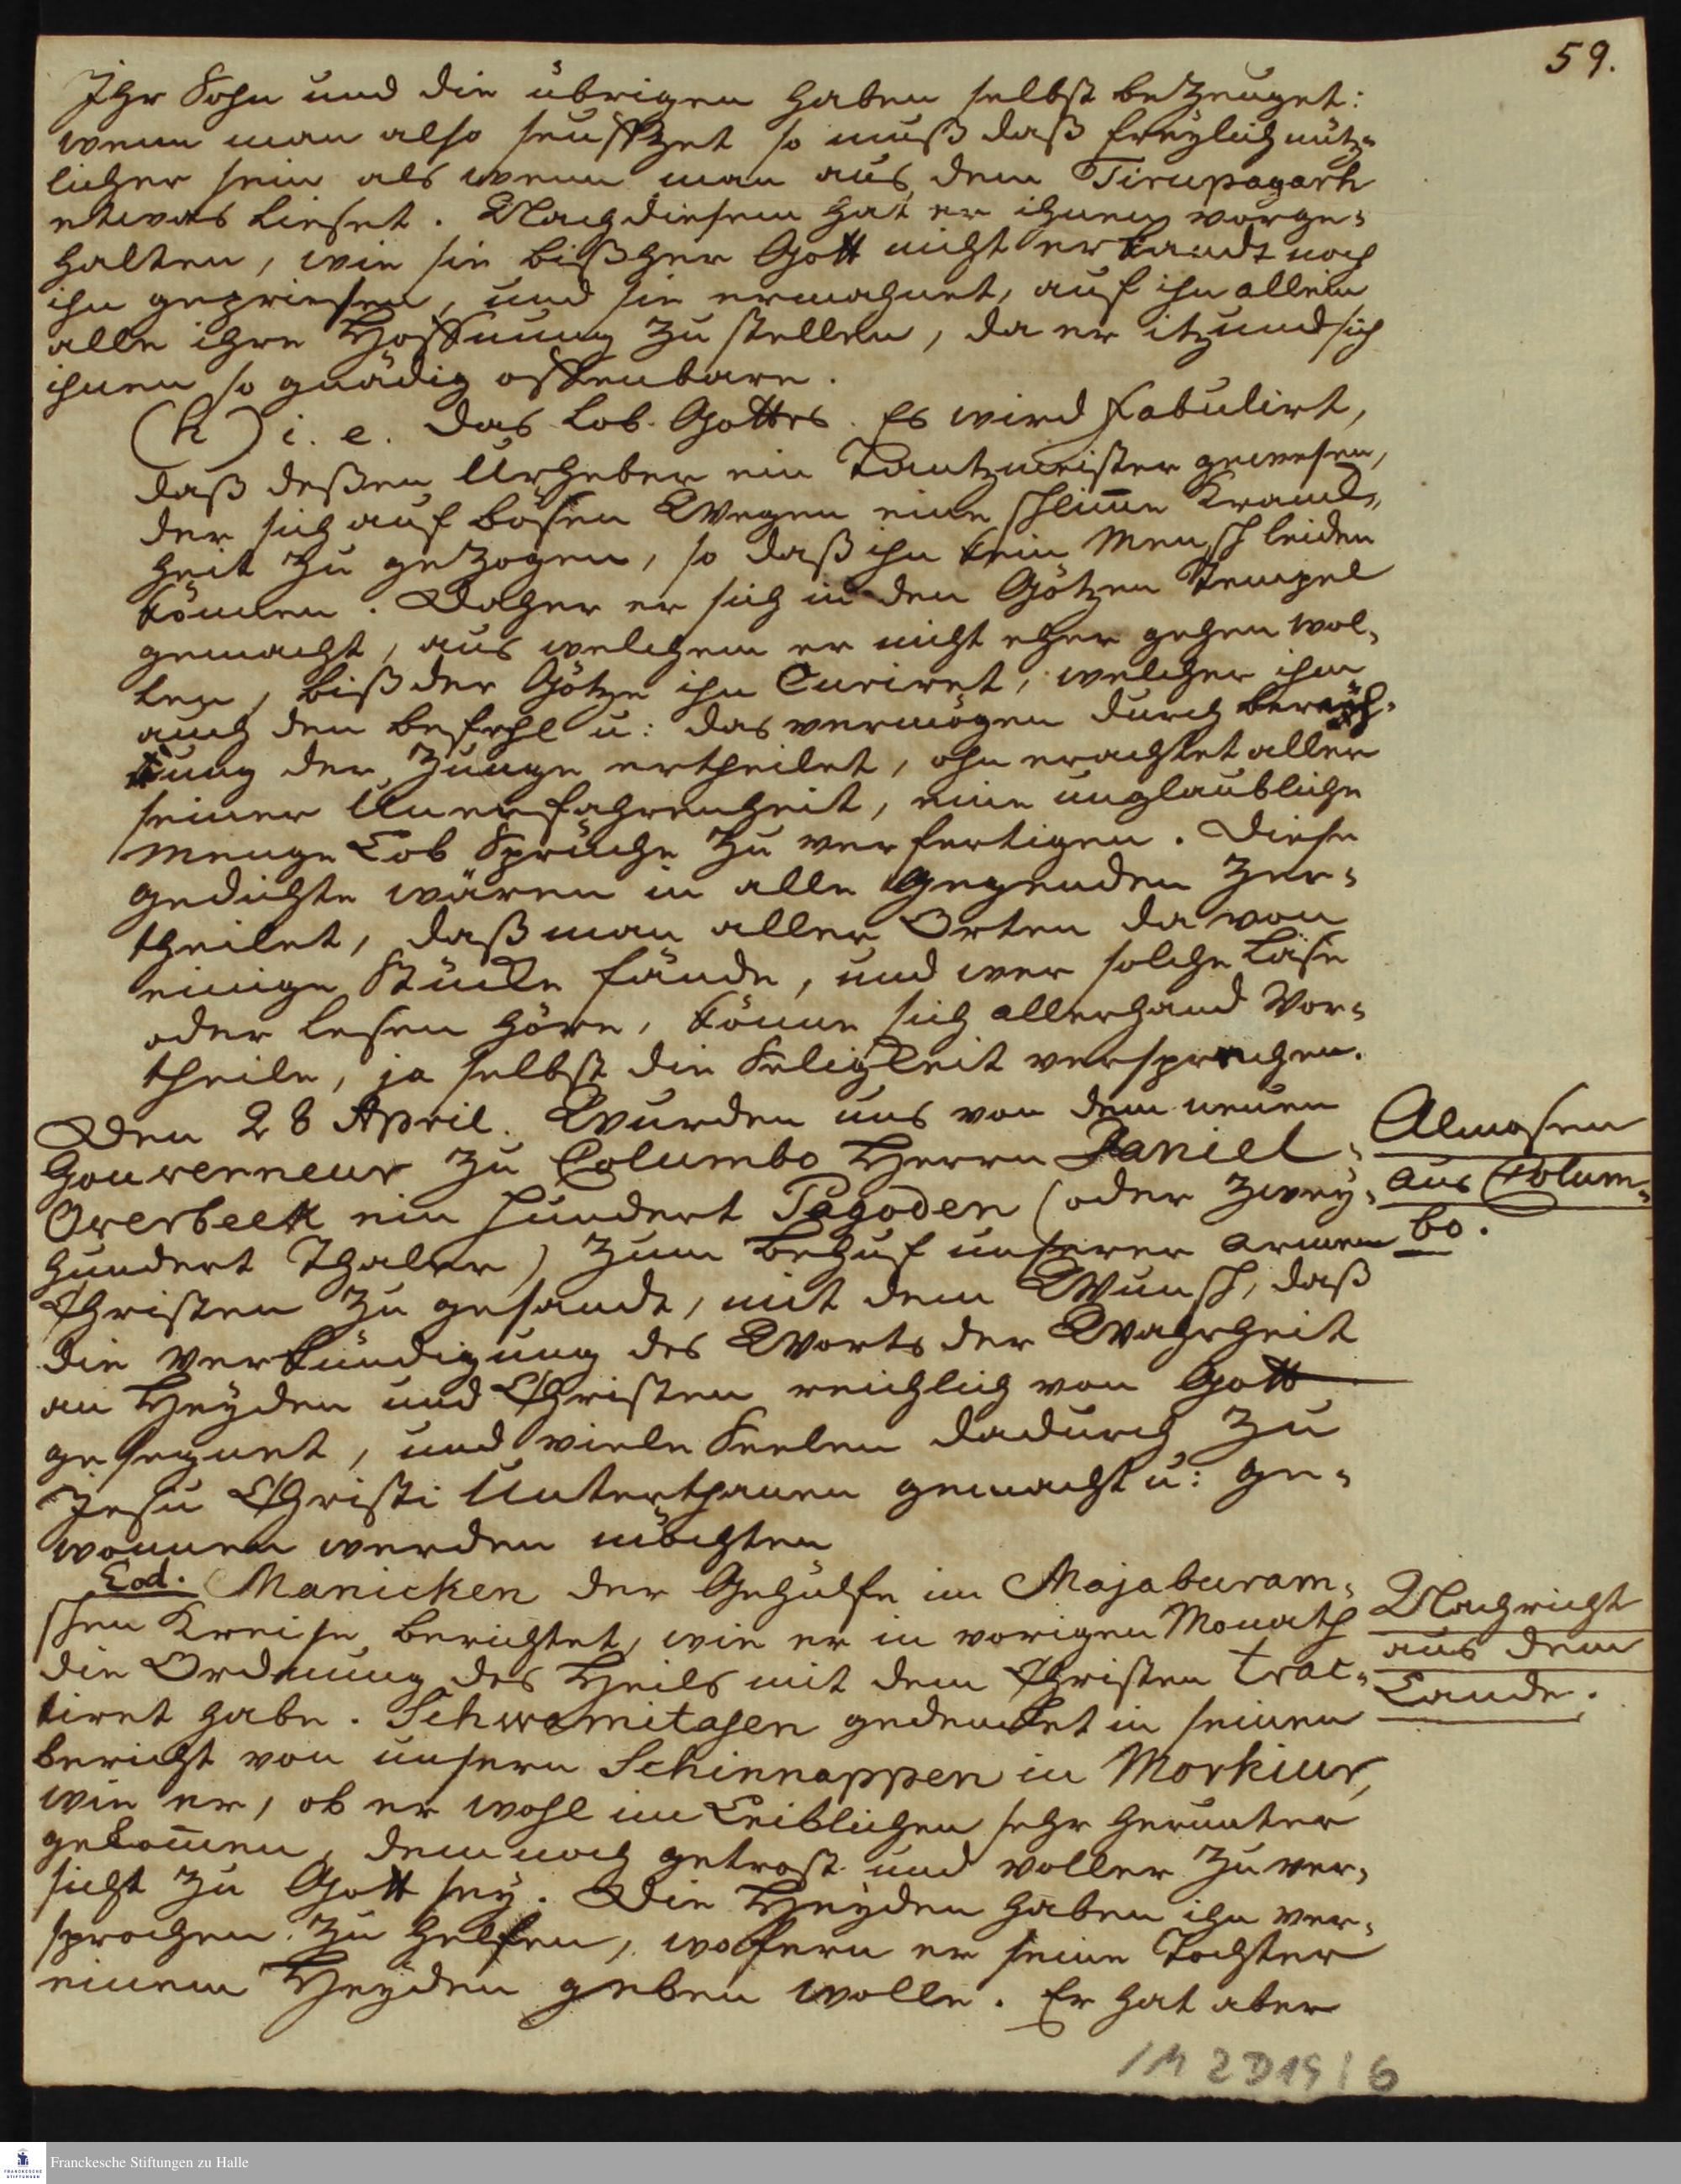 59.
Ihr Sohn und die übrigen haben selbst bezeuget:
wenn man also seuffzet so muß daß freylich nütz-
licher sein als wenn man aus dem Tirupagarh
etwas lieset. Nach diesem hat er ihnen vorge-
halten, wie sie bißher Gott nicht erkandt noch
ihn gepriesen, und sie ermahnet, auf ihn allein
alle ihre Hoffnung zu stellen, da er itzund sich
ihnen so gnädig offenbare.
(h) i. e. das Lob Gottes. Es wird fabulirt,
daß deßen Urheber ein Tantzmeister gewesen,
der sich auf bösen Wegen eine schlim̄e Kranck-
heit zu gezogen, so daß ihn kein Mensch leiden
können. Daher er sich in den Götzen Tempel
gemacht, aus welchem er nicht eher gehen wol-
len, biß der Götze ihn Curiret, welcher ihm
auch den befehl u: das vermögen durch
der Zunge ertheilet, ohnerachtet aller
seiner Unerfahrenheit, eine unglaubliche
Menge Lob Sprüche zu verfertigen. Diese
gedichte wären in alle Gegenden zer-
theilet, daß man aller Orten davon
einige Stücke fände, und wer solche läse
oder lesen höre, könne sich allerhand Vor-
theile, ja selbst die Seligkeit versprechen.
Den 28 April. Wurden uns von dem neuen
Gouverneur zu Columbo Herrn Daniel
Overbeek ein hundert Pagoden (oder zwey-
hundert Thaler) zum behuf unserer armen
Christen zu gesandt, mit dem Wunsch, daß
die Verkündigung des Worts der Wahrheit
an Heyden und Christen reichlich von Gott
gesegnet, und viele Seelen dadurch zu
Jesu Christi Unterthanen gemacht u: ge-
wonnen werden möchten
Almosen
aus Colum-
bo.
Eod. Manicken der Gehülfe im Majaburam-
schen Kreise berichtet, wie er in vorigen Monath
die Ordnung des Heils mit dem Christen trac-
tiret habe. Schwamitasen gedencket in seinen
bericht von unsern Schinnappen in Morkiur,
wie er, ob er wohl im Leiblichen sehr herunter
gekom̄en, dennoch getrost und voller Zuver-
sicht zu Gott sey. Die Heyden haben ihn ver-
sprochen zu helfen, wofern er seine Tochter
einem Heyden geben wolle. Er hat aber
Nachricht
aus dem
Lande.
1M 2D19 | 6
FRANCKESCHE STIFTUNGEN
Franckesche Stiftungen zu Halle